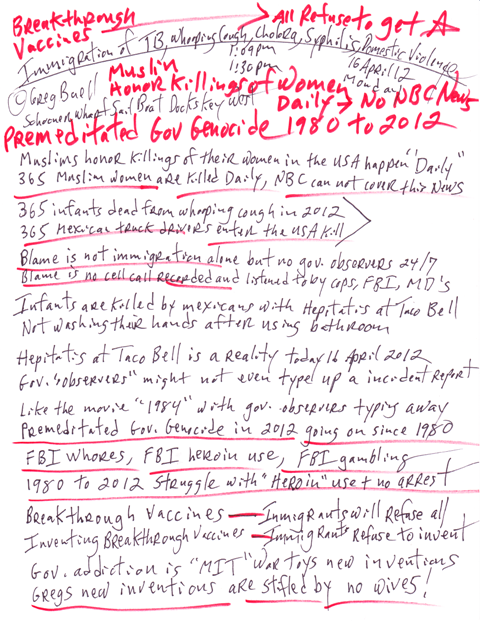 Breakthrough Vaccines → All Refuse to get A
Immigration of TB, whooping cough, Cholera, Syphilis, Domestic Violence
1:09 pm
1:30 pm
16 April 12
Monday
© Greg Buell
Schooner Wharf Sail Boat Docks Key West
Muslim
Honor Killings of Women
Daily → No NBC News
Premeditated Gov Genocide 1980 to 2012
Muslims honor killings of their women in the USA happen "Daily"
365 Muslim women are killed Daily, NBC can not cover this News
365 infants dead from whooping cough in 2012
365 Mexican truck drivers enter the USA kill
Blame is not immigration alone but no gov. observers 24/7
Blame is no cell call recorded and listened to by cops, FBI, MD's
Infants are killed by mexicans with Hepititis at Taco Bell
Not washing their hands after using bathroom
Hepititis at Taco Bell is a reality today 16 April 2012
Gov. "observers" might not even type up a incident report
Like the movie "1984" with gov. observers typing away
Premeditated Gov. Genocide in 2012 going on since 1980
FBI whores, FBI heroin use, FBI gambling
1980 to 2012 struggle with "Heroin" use + no arrest
Breakthrough Vaccines — Immigrants will Refuse all
Inventing Breakthrough Vaccines — Immigrants Refuse to invent
Gov. addiction is "MIT" War toys new inventions
Gregs new inventions are stifled by no wives!